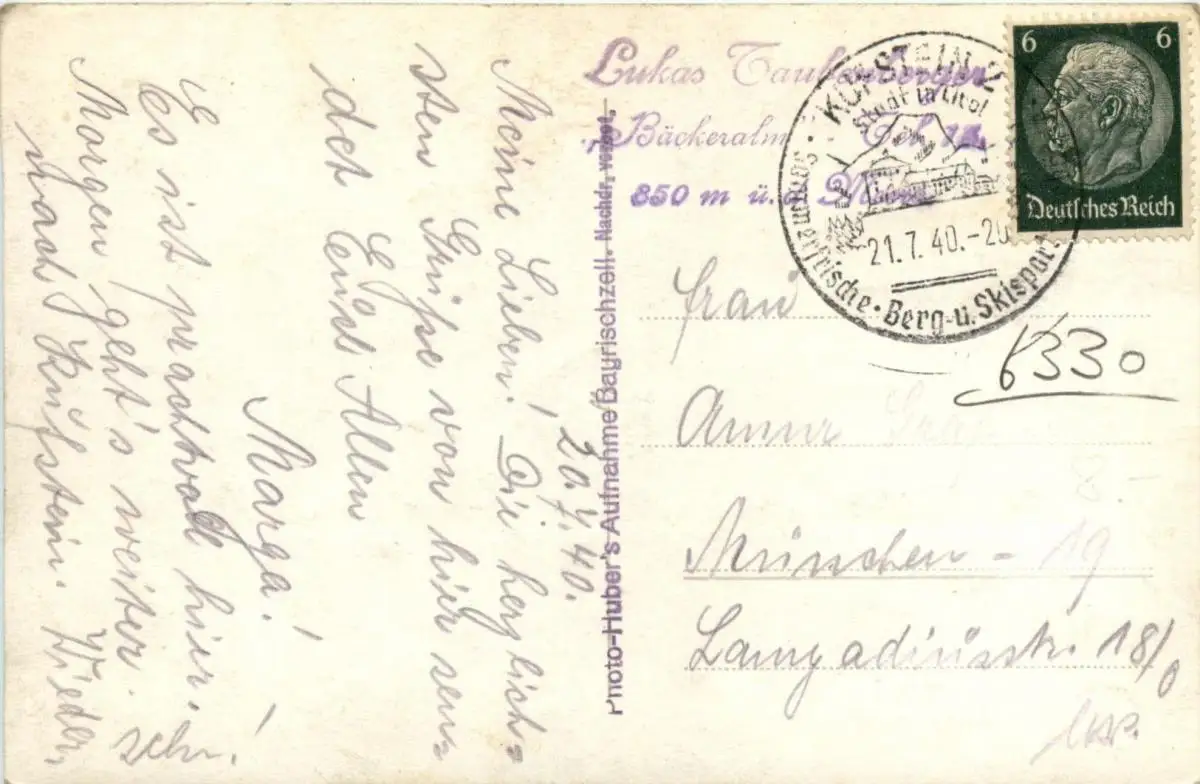 20.7.40.
Meine Lieben! Die herzlich=
sten Grüße von hier sen=
det Euch Allen
Marga!
Es ist prachtvoll hier.
Morgen geht's weiter
nach Kufstein. Wieder
sehn!
Photo-Huber's Aufnahme Bayrischzell. Nachdr. verbot.
Lukas Taubenberger
Bäckeralm
850 m ü.
KUFSTEIN 2
Stadt in Tirol
21.7.40.-20
Sommerfrische · Berg- u. Skisport
6 6
Deutsches Reich
Frau
München - 19
18/0
6330
8.-